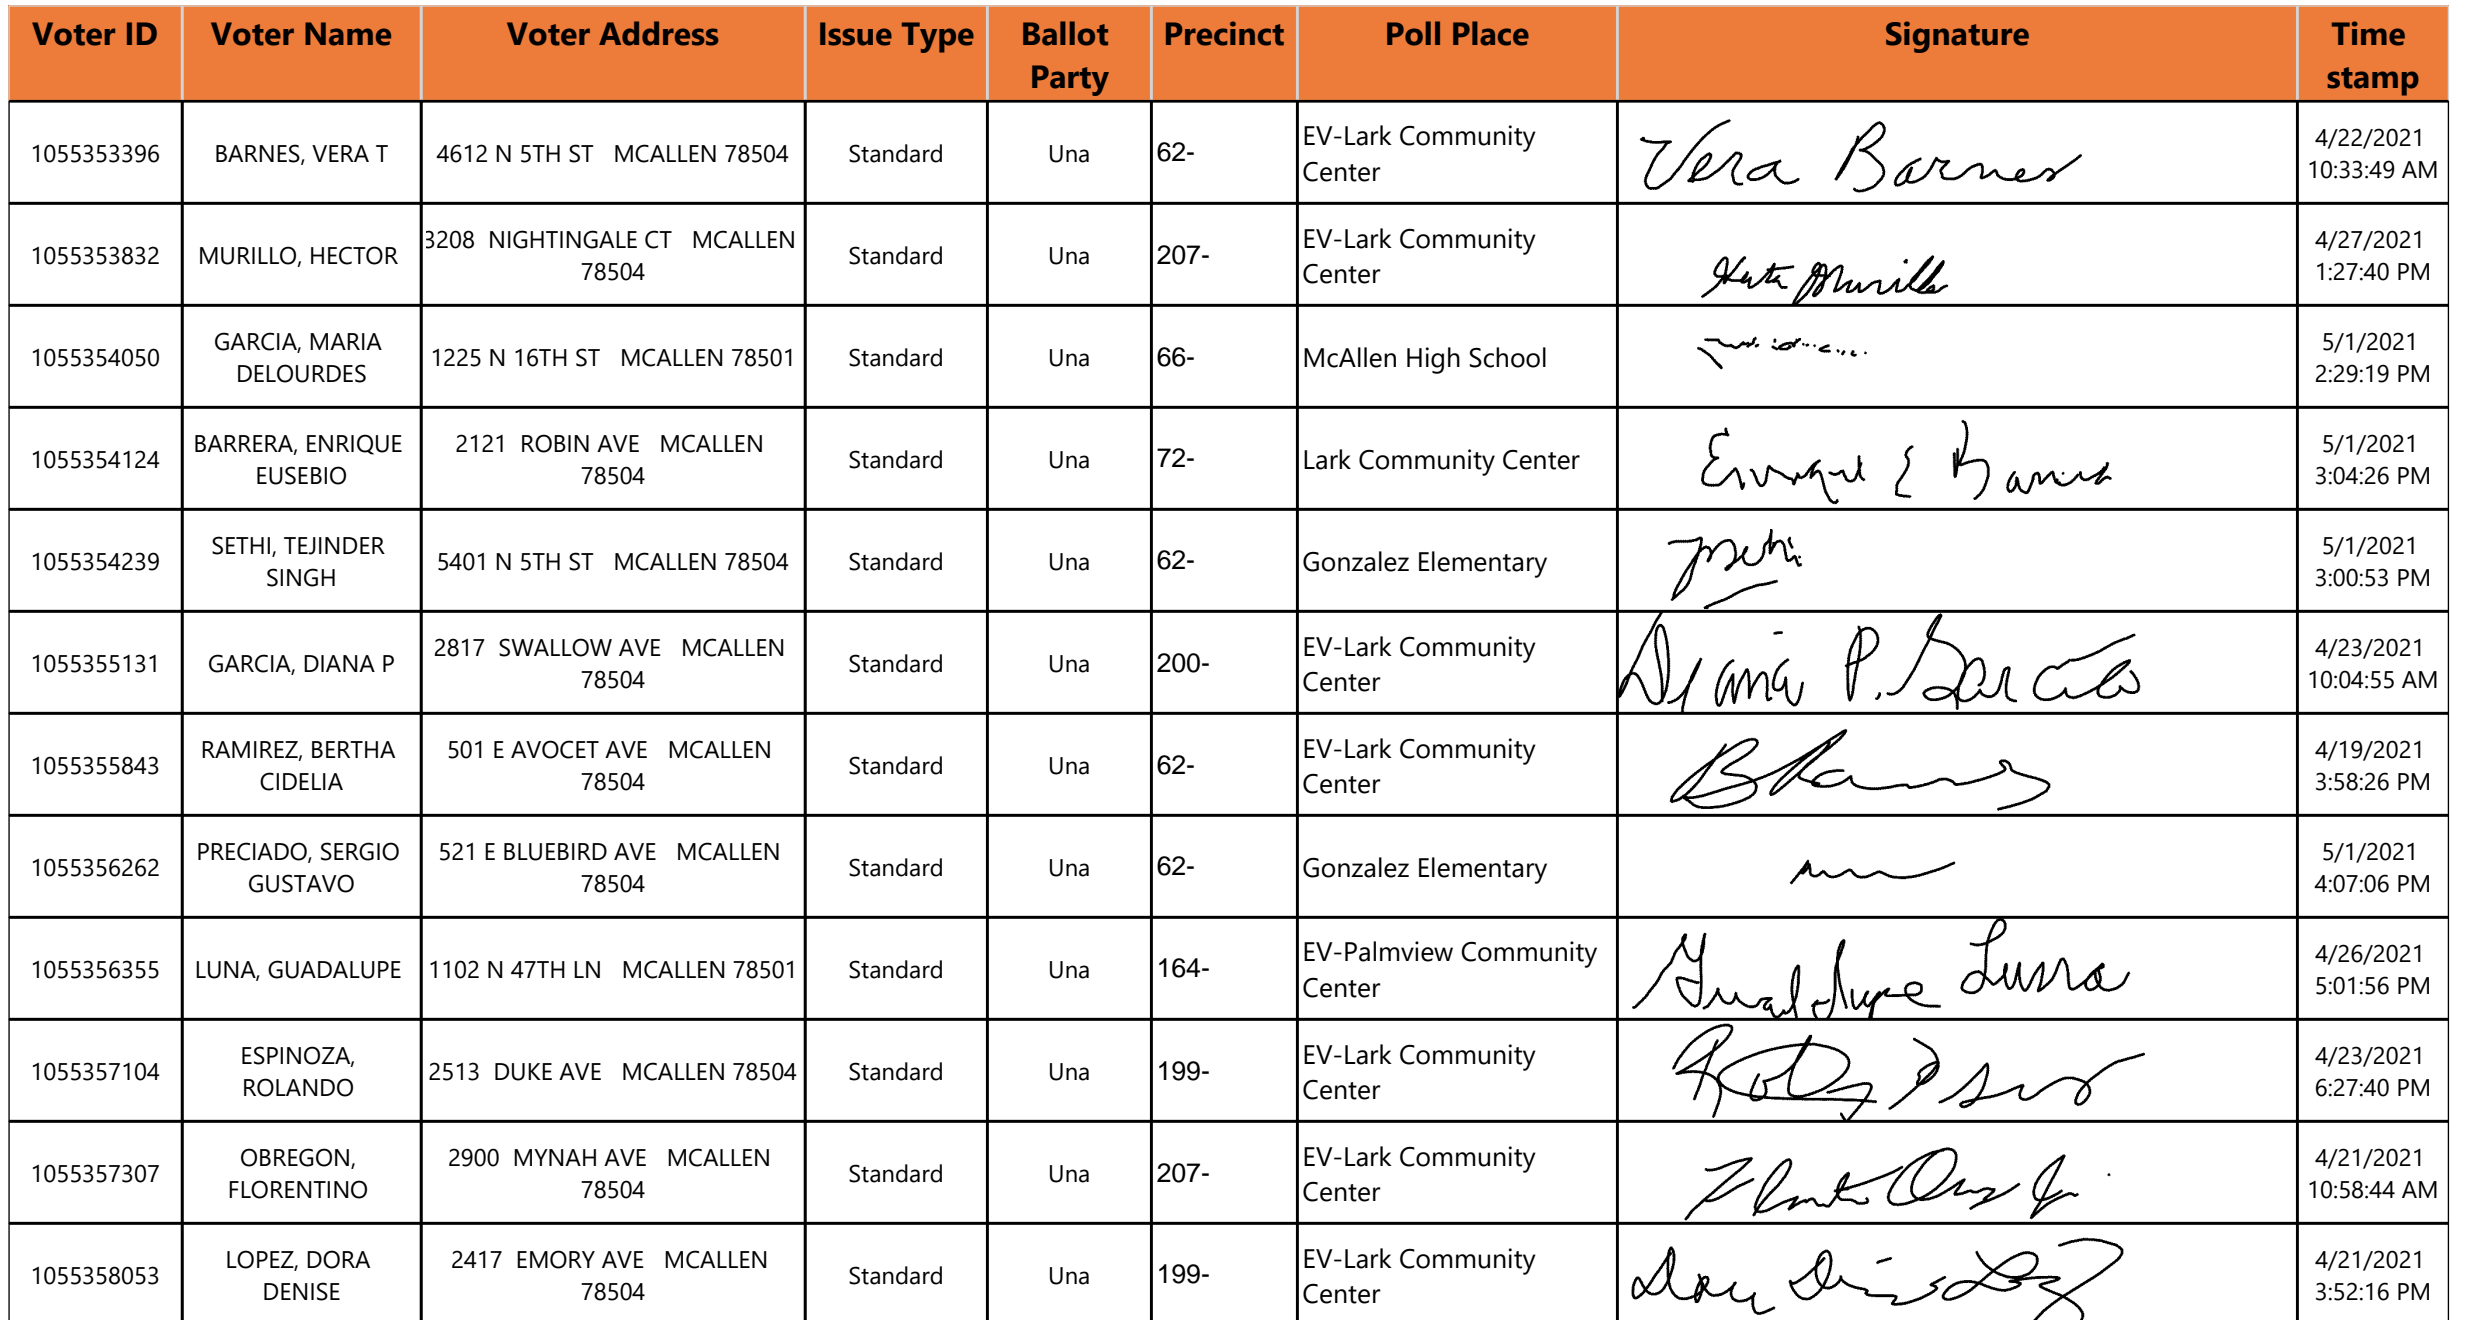 Voter ID Voter Name Voter Address Issue Type Ballot Party Precinct Poll Place Signature Time stamp
1055353396 BARNES, VERA T 4612 N 5TH ST MCALLEN 78504 Standard Una 62- EV-Lark Community Center Vera Barnes 4/22/2021 10:33:49 AM
1055353832 MURILLO, HECTOR 3208 NIGHTINGALE CT MCALLEN 78504 Standard Una 207- EV-Lark Community Center Murillo 4/27/2021 1:27:40 PM
1055354050 GARCIA, MARIA DELOURDES 1225 N 16TH ST MCALLEN 78501 Standard Una 66- McAllen High School 5/1/2021 2:29:19 PM
1055354124 BARRERA, ENRIQUE EUSEBIO 2121 ROBIN AVE MCALLEN 78504 Standard Una 72- Lark Community Center Enrique E Barrera 5/1/2021 3:04:26 PM
1055354239 SETHI, TEJINDER SINGH 5401 N 5TH ST MCALLEN 78504 Standard Una 62- Gonzalez Elementary 5/1/2021 3:00:53 PM
1055355131 GARCIA, DIANA P 2817 SWALLOW AVE MCALLEN 78504 Standard Una 200- EV-Lark Community Center Diana P. Garcia 4/23/2021 10:04:55 AM
1055355843 RAMIREZ, BERTHA CIDELIA 501 E AVOCET AVE MCALLEN 78504 Standard Una 62- EV-Lark Community Center 4/19/2021 3:58:26 PM
1055356262 PRECIADO, SERGIO GUSTAVO 521 E BLUEBIRD AVE MCALLEN 78504 Standard Una 62- Gonzalez Elementary 5/1/2021 4:07:06 PM
1055356355 LUNA, GUADALUPE 1102 N 47TH LN MCALLEN 78501 Standard Una 164- EV-Palmview Community Center Guadalupe Luna 4/26/2021 5:01:56 PM
1055357104 ESPINOZA, ROLANDO 2513 DUKE AVE MCALLEN 78504 Standard Una 199- EV-Lark Community Center 4/23/2021 6:27:40 PM
1055357307 OBREGON, FLORENTINO 2900 MYNAH AVE MCALLEN 78504 Standard Una 207- EV-Lark Community Center 4/21/2021 10:58:44 AM
1055358053 LOPEZ, DORA DENISE 2417 EMORY AVE MCALLEN 78504 Standard Una 199- EV-Lark Community Center 4/21/2021 3:52:16 PM